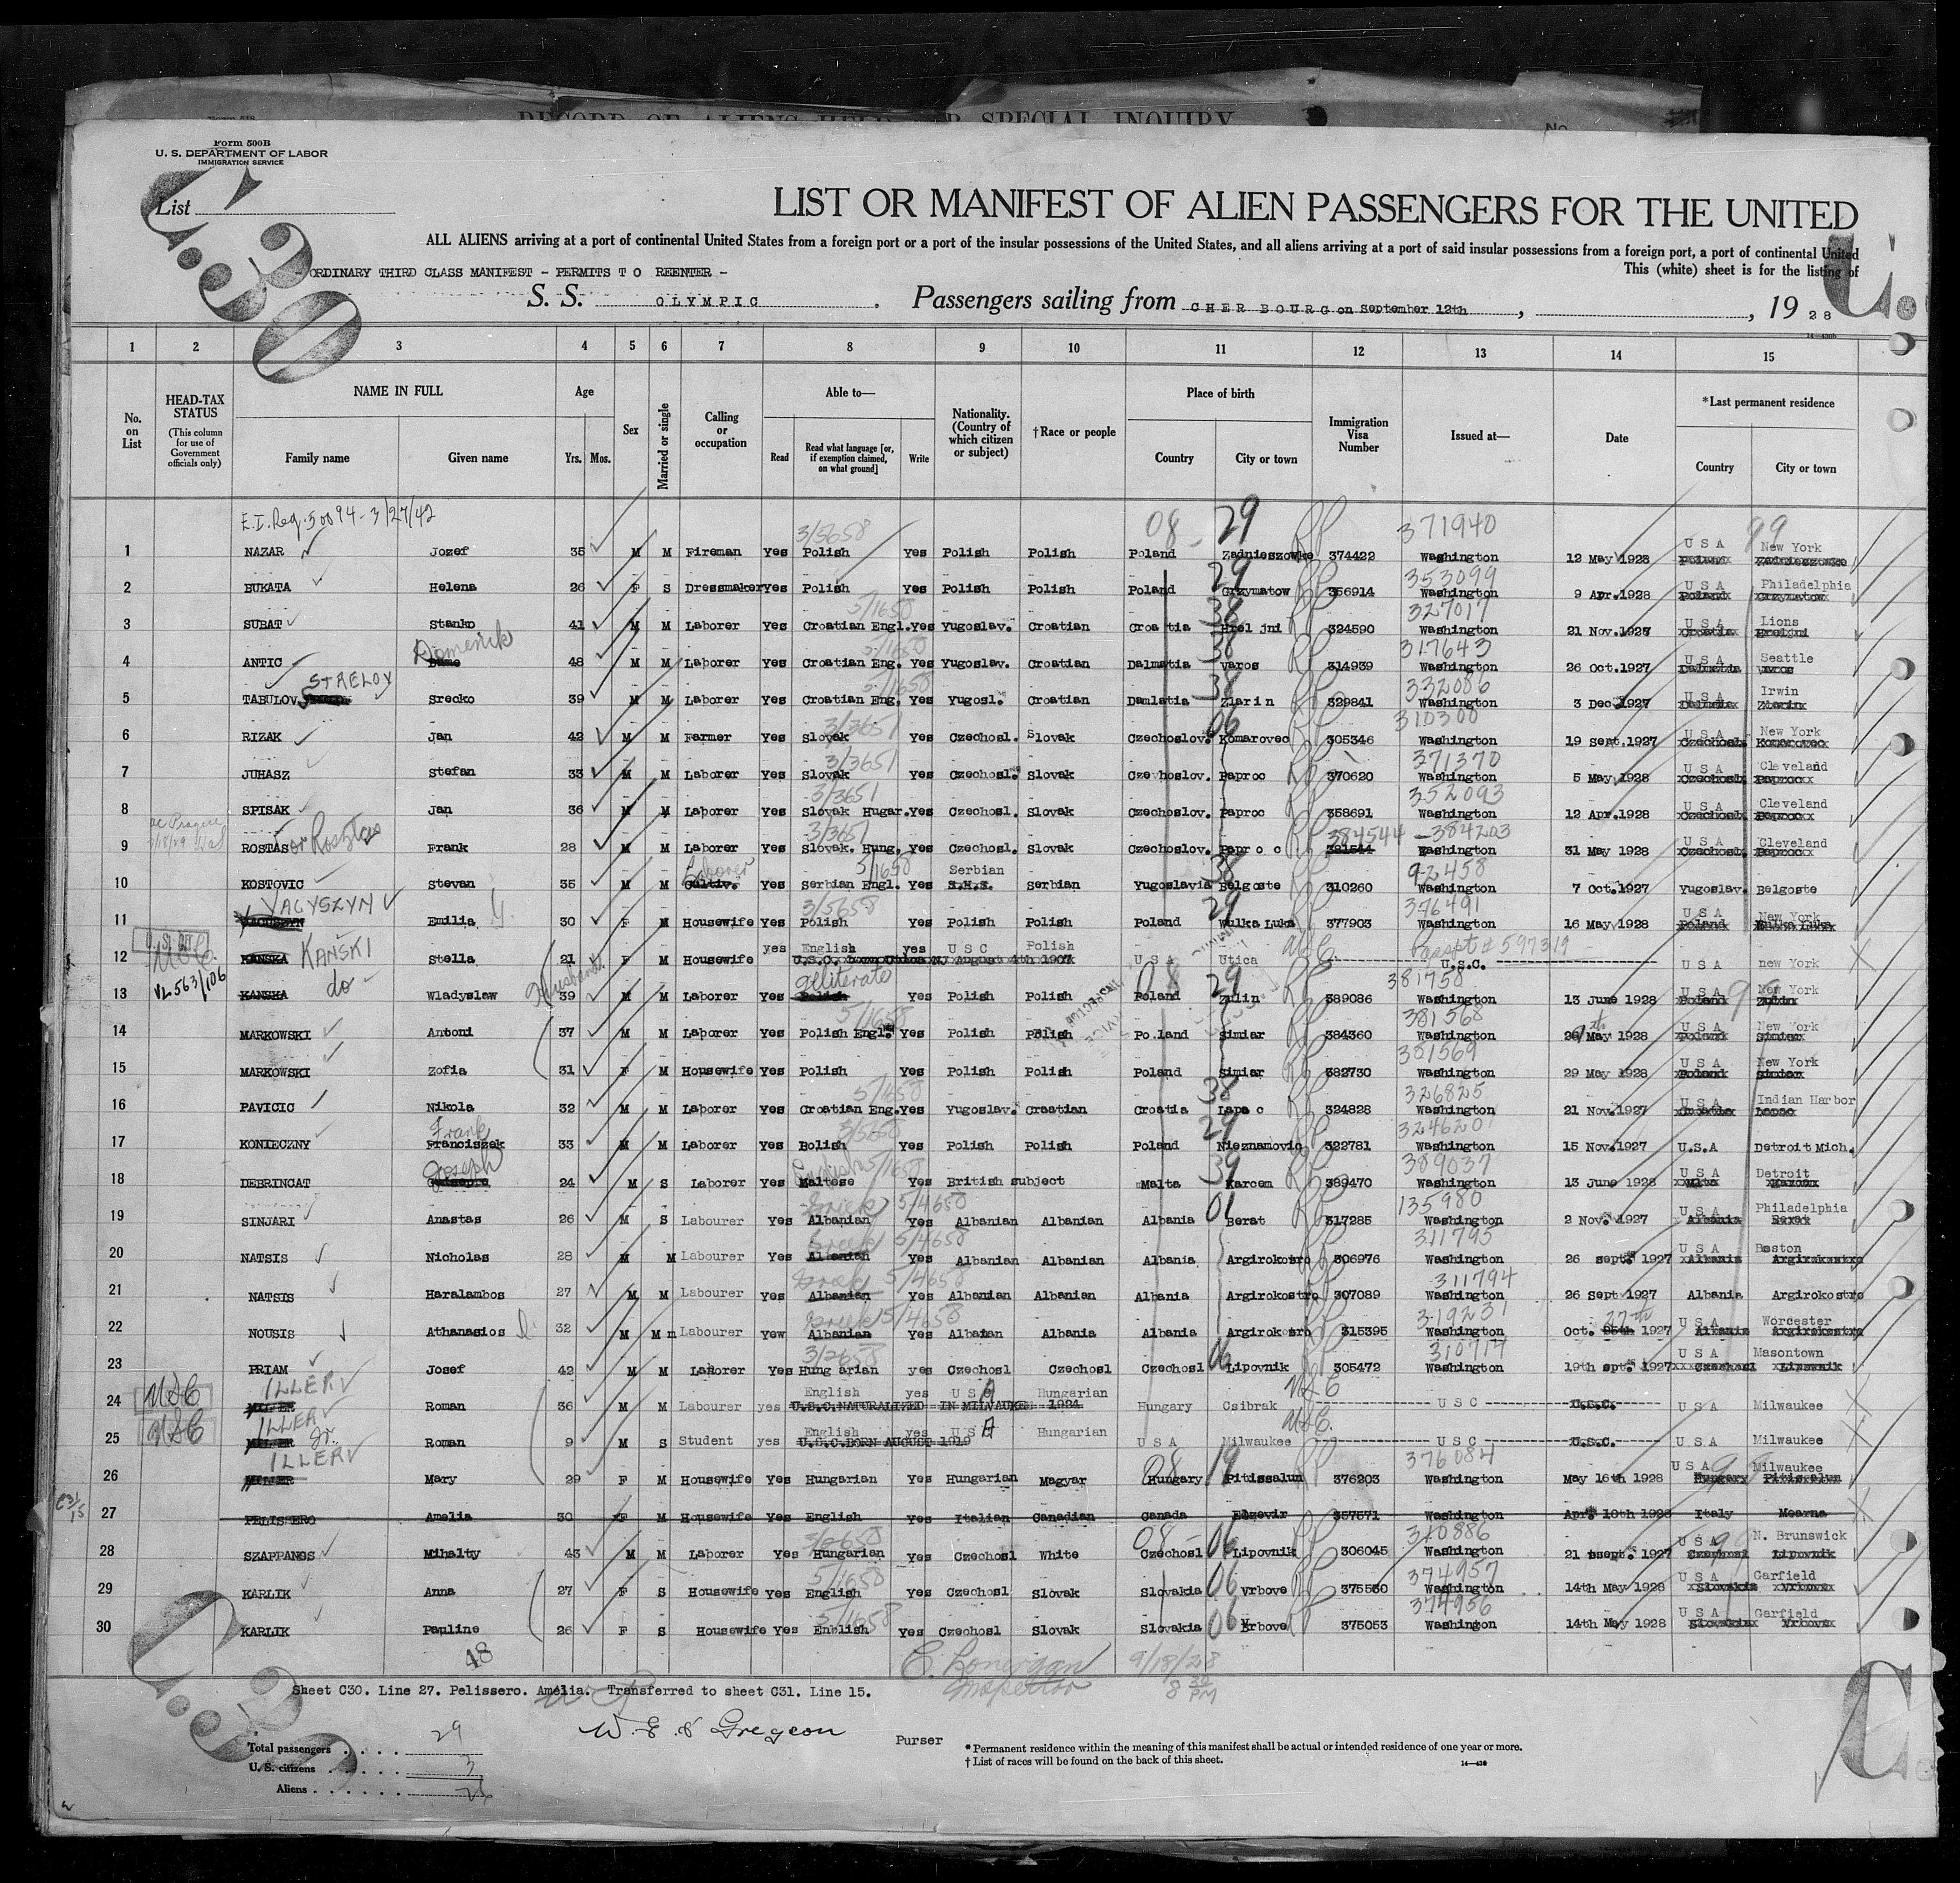 RECORD OF ALIENS HELD FOR SPECIAL INQUIRY
No.
Form 500B
U. S. DEPARTMENT OF LABOR
IMMIGRATION SERVICE
List
C.30
LIST OR MANIFEST OF ALIEN PASSENGERS FOR THE UNITED
ALL ALIENS arriving at a port of continental United States from a foreign port or a port of the insular possessions of the United States, and all aliens arriving at a port of said insular possessions from a foreign port, a port of continental United
This (white) sheet is for the listing of
- ORDINARY THIRD CLASS MANIFEST - PERMITS T O REENTER -
S. S. OLYMPIC . Passengers sailing from CHER BOURG on September 12th , , 19 28
1 2 3 4 5 6 7 8 9 10 11 12 13 14 15
No. on List
HEAD-TAX STATUS (This column for use of Government officials only)
NAME IN FULL Family name Given name
Age Yrs. Mos.
Sex
Married or single
Calling or occupation
Able to— Read Read what language [or, if exemption claimed, on what ground] Write
Nationality. (Country of which citizen or subject)
†Race or people
Place of birth Country City or town
Immigration Visa Number
Issued at—
Date
*Last permanent residence Country City or town
E.I. Req. 50094 - 3/27/42
3/5658 08 - 29 371940 99
1 NAZAR Jozef 35 M M Fireman Yes Polish Yes Polish Polish Poland Zadnieszowke 374422 Washington 12 May 1928 U S A New York
29 353099
2 BUKATA Helena 26 F S Dressmaker Yes Polish Yes Polish Polish Poland Grzymatow 356914 Washington 9 Apr.1928 U S A Philadelphia
5/1658 38 327017
3 SUBAT Stanko 41 M M Laborer Yes Croatian Engl. Yes Yugoslav. Croatian Croatia Hrel jni 324590 Washington 21 Nov.1927 U S A Lions
Domenik 5/1658 38 317643
4 ANTIC 48 M M Laborer Yes Croatian Eng. Yes Yugoslav. Croatian Dalmatia Varos 314939 Washington 26 Oct.1927 U S A Seattle
STRELOV 5/1658 38 332086
5 TABULOV Srecko 39 M M Laborer Yes Croatian Eng. Yes Yugosl. Croatian Damlatia Zlarin 329841 Washington 3 Dec.1927 U S A Irwin
3/3651 06 310300
6 RIZAK Jan 42 M M Farmer Yes Slovak Yes Czechosl. Slovak Czechoslov. Komarovec 305346 Washington 19 sept.1927 U S A New York
3/3651 371370
7 JUHASZ Stefan 33 M M Laborer Yes Slovak Yes Czechosl. Slovak Czevhoslov. Paproc 370620 Washington 5 May 1928 U S A Cleveland
3/3651 352093
8 SPISAK Jan 36 M M Laborer Yes Slovak Hugar. Yes Czechosl. Slovak Czechoslov. Paproc 358691 Washington 12 Apr.1928 U S A Cleveland
or Rosztas 3/3651 384544 - 384203
9 ROSTAS Frank 28 M M Laborer Yes Slovak. Hung. Yes Czechosl. Slovak Czechoslov. Papr o c 381544 Washington 31 May 1928 U S A Cleveland
Laborer 5/1658 Serbian 38 92458
10 KOSTOVIC Stevan 35 M M Cultiv. Yes Serbian Engl. Yes S.H.S. Serbian Yugoslavia Belgoste 310260 Washington 7 Oct.1927 Yugoslav. Belgoste
VAGYSZYN 3/5658 29 376491
11 Emilia 30 F M Housewife Yes Polish Yes Polish Polish Poland Wulka Luka 377903 Washington 16 May 1928 U S A New York
yes English yes U S C Polish USC Passpt # 597319
12 KANSKA KANSKI Stella 21 F M Housewife U.S.C. born Utica NJ August 4th 1907 U S A Utica U.S.C. U S A new York
VL 563/106 do Husband illiterate 08 29 381758
13 KANSKA Wladyslaw 39 M M Laborer Yes Polish Yes Polish Polish Poland Zulin 389086 Washington 13 June 1928 U S A New York
5/1658 381568
14 MARKOWSKI Antoni 37 M M Laborer Yes Polish Engl. Yes Polish Polish Po.land Simiar 384360 Washington May 1928 U S A New York
381569
15 MARKOWSKI Zofia 31 F M Housewife Yes Polish Yes Polish Polish Poland Simiar 382730 Washington 29 May 1928 U S A New York
38 326825
16 PAVICIC Nikola 32 M M Laborer Yes Croatian Eng. Yes Yugoslav. Craatian Croatia Lapa c 324828 Washington 21 Nov.1927 U S A Indian Harbor
Frank 3/5658 29 324620
17 KONIECZNY Franciszek 33 M M Laborer Yes Bolish Yes Polish Polish Poland Nieznamovic 322781 Washington 15 Nov.1927 U.S.A Detroit Mich.
Joseph English 5/1658 39 389037
18 DEBRINCAT 24 M S Laborer Yes Maltese Yes British subject Malta Karcem 389470 Washington 13 June 1928 U S A Detroit
Greek 5/4658 01 135980
19 SINJARI Anastas 26 M S Labourer Yes Albanian Yes Albanian Albanian Albania Berat 317285 Washington 2 Nov. 1927 U S A Philadelphia
Greek 5/4658 311795
20 NATSIS Nicholas 28 M M Labourer Yes Albanian Yes Albanian Albanian Albania Argirokostro 306976 Washington 26 sept 1927 U S A Boston
Greek 5/4658 311794
21 NATSIS Haralambos 27 M M Labourer Yes Albanian Yes Albanian Albanian Albania Argirokostro 307089 Washington 26 sept 1927 Albania Argirokostro
Greek 5/4658 319231 27th
22 NOUSIS Athanasios 32 M M m Labourer yew Albanian Yes Albanian Albania Albania Argirokostro 315395 Washington Oct. 1927 U S A Worcester
3/2658 06 310717
23 PRIAM Josef 42 M M Laborer Yes Hung arian yes Czechosl Czechosl Czechosl Lipovnik 305472 Washington 19th sept. 1927 U S A Masontown
USC ILLER English yes U S Hungarian USC
24 MILER Roman 36 M M Labourer yes U.S.C.NATURALIZED IN MILWAUKE 1924 Hungary Csibrak U S C U.S.C. U S A Milwaukee
USC ILLER Jr. English yes U S Hungarian USC
25 MILLER Roman 9 M S Student yes U.S.C.BORN AUGUST 1919 U S A Milwaukee U S C U.S.C. U S A Milwaukee
ILLER 08 19 376084
26 Mary 29 F M Housewife Yes Hungarian Yes Hungarian Magyar Hungary Pitissalun 376203 Washington May 16th 1928 U S A Milwaukee
C31/15
27 PELISSERO Amelia 30 F M Housewife Yes English Yes Italian Canadian Canada Elzevir 357571 Washington Apr. 10th 1928 Italy Mearna
5/2658 08 - 06 310886
28 SZAPPANOS Mihalty 43 M M Laborer Yes Hungarian Yes Czechosl White Czechosl Lipovnik 306045 Washington 21 ssept. 1927 U S A N. Brunswick
5/1658 06 374957
29 KARLIK Anna 27 F S Housewife Yes English Yes Czechosl Slovak Slovakia Vrbove 375550 Washington 14th May 1928 U S A Garfield
5/1658 06 374956
30 KARLIK Pauline 26 F S Housewife Yes Enblish Yes Czechosl Slovak Slovakia Vrbove 375053 Washington 14th May 1928 U S A Garfield
48
C. Lonergan 9/18/28
Inspector 8 30 PM
Sheet C30. Line 27. Pelissero. Amelia. Transferred to sheet C31. Line 15.
Purser
Total passengers . . . . 29
U. S. citizens . . . . . . 3
Aliens . . . . . . . 26
* Permanent residence within the meaning of this manifest shall be actual or intended residence of one year or more.
† List of races will be found on the back of this sheet.
14—430